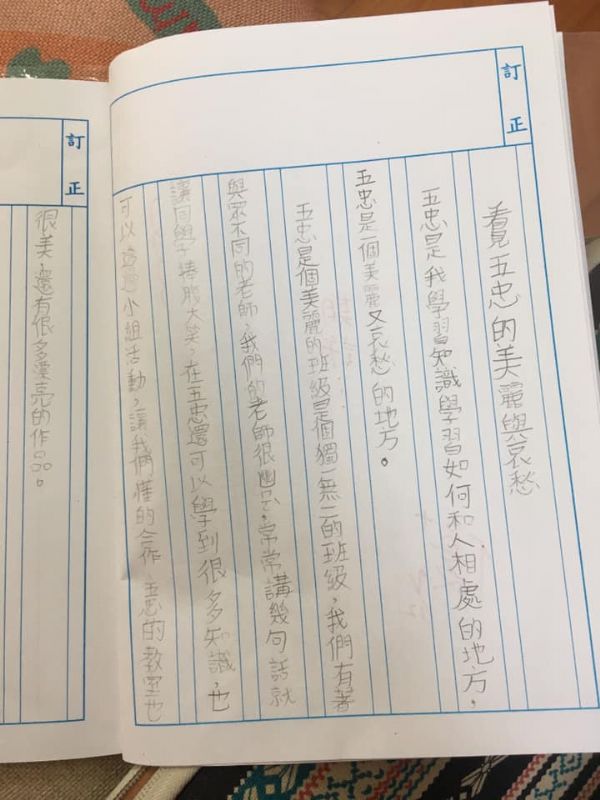 訂正
看見五忠的美麗與哀愁
五忠是我學習知識學習如何和人相處的地方，
五忠是一個美麗又哀愁的地方。
五忠是個美麗的班級是個獨一無二的班級，我們有著
與眾不同的老師，我們的老師很幽默，常常講幾句話就
讓同學捧腹大笑，在五忠還可以學到很多知識，也
可以透過小組活動，讓我們懂的合作，五忠的教室也
訂正
很美，還有很多漂亮的作品。